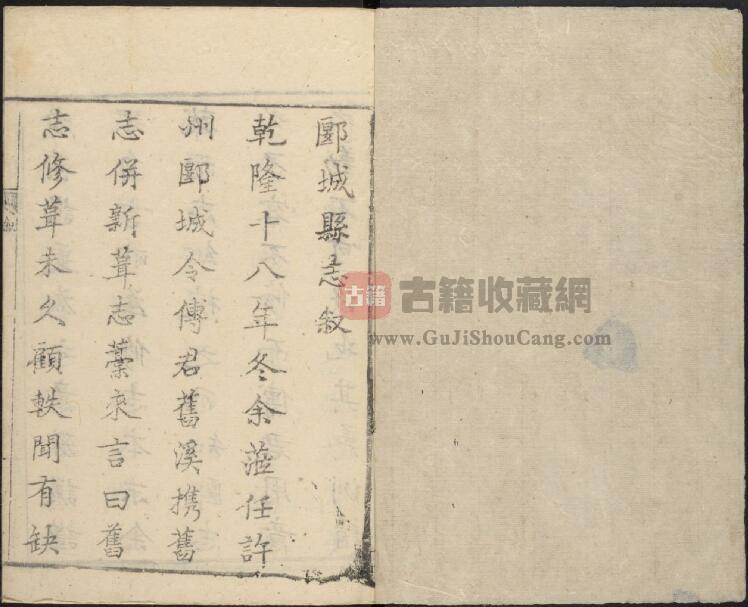 郾城縣志敘
乾隆十八年冬余蒞任許
州郾城令傅君舊溪携舊
志併新葺志藁來言曰舊
志修葺未久顧軼聞有缺
古籍
古籍收藏網
www.GuJiShouCang.com